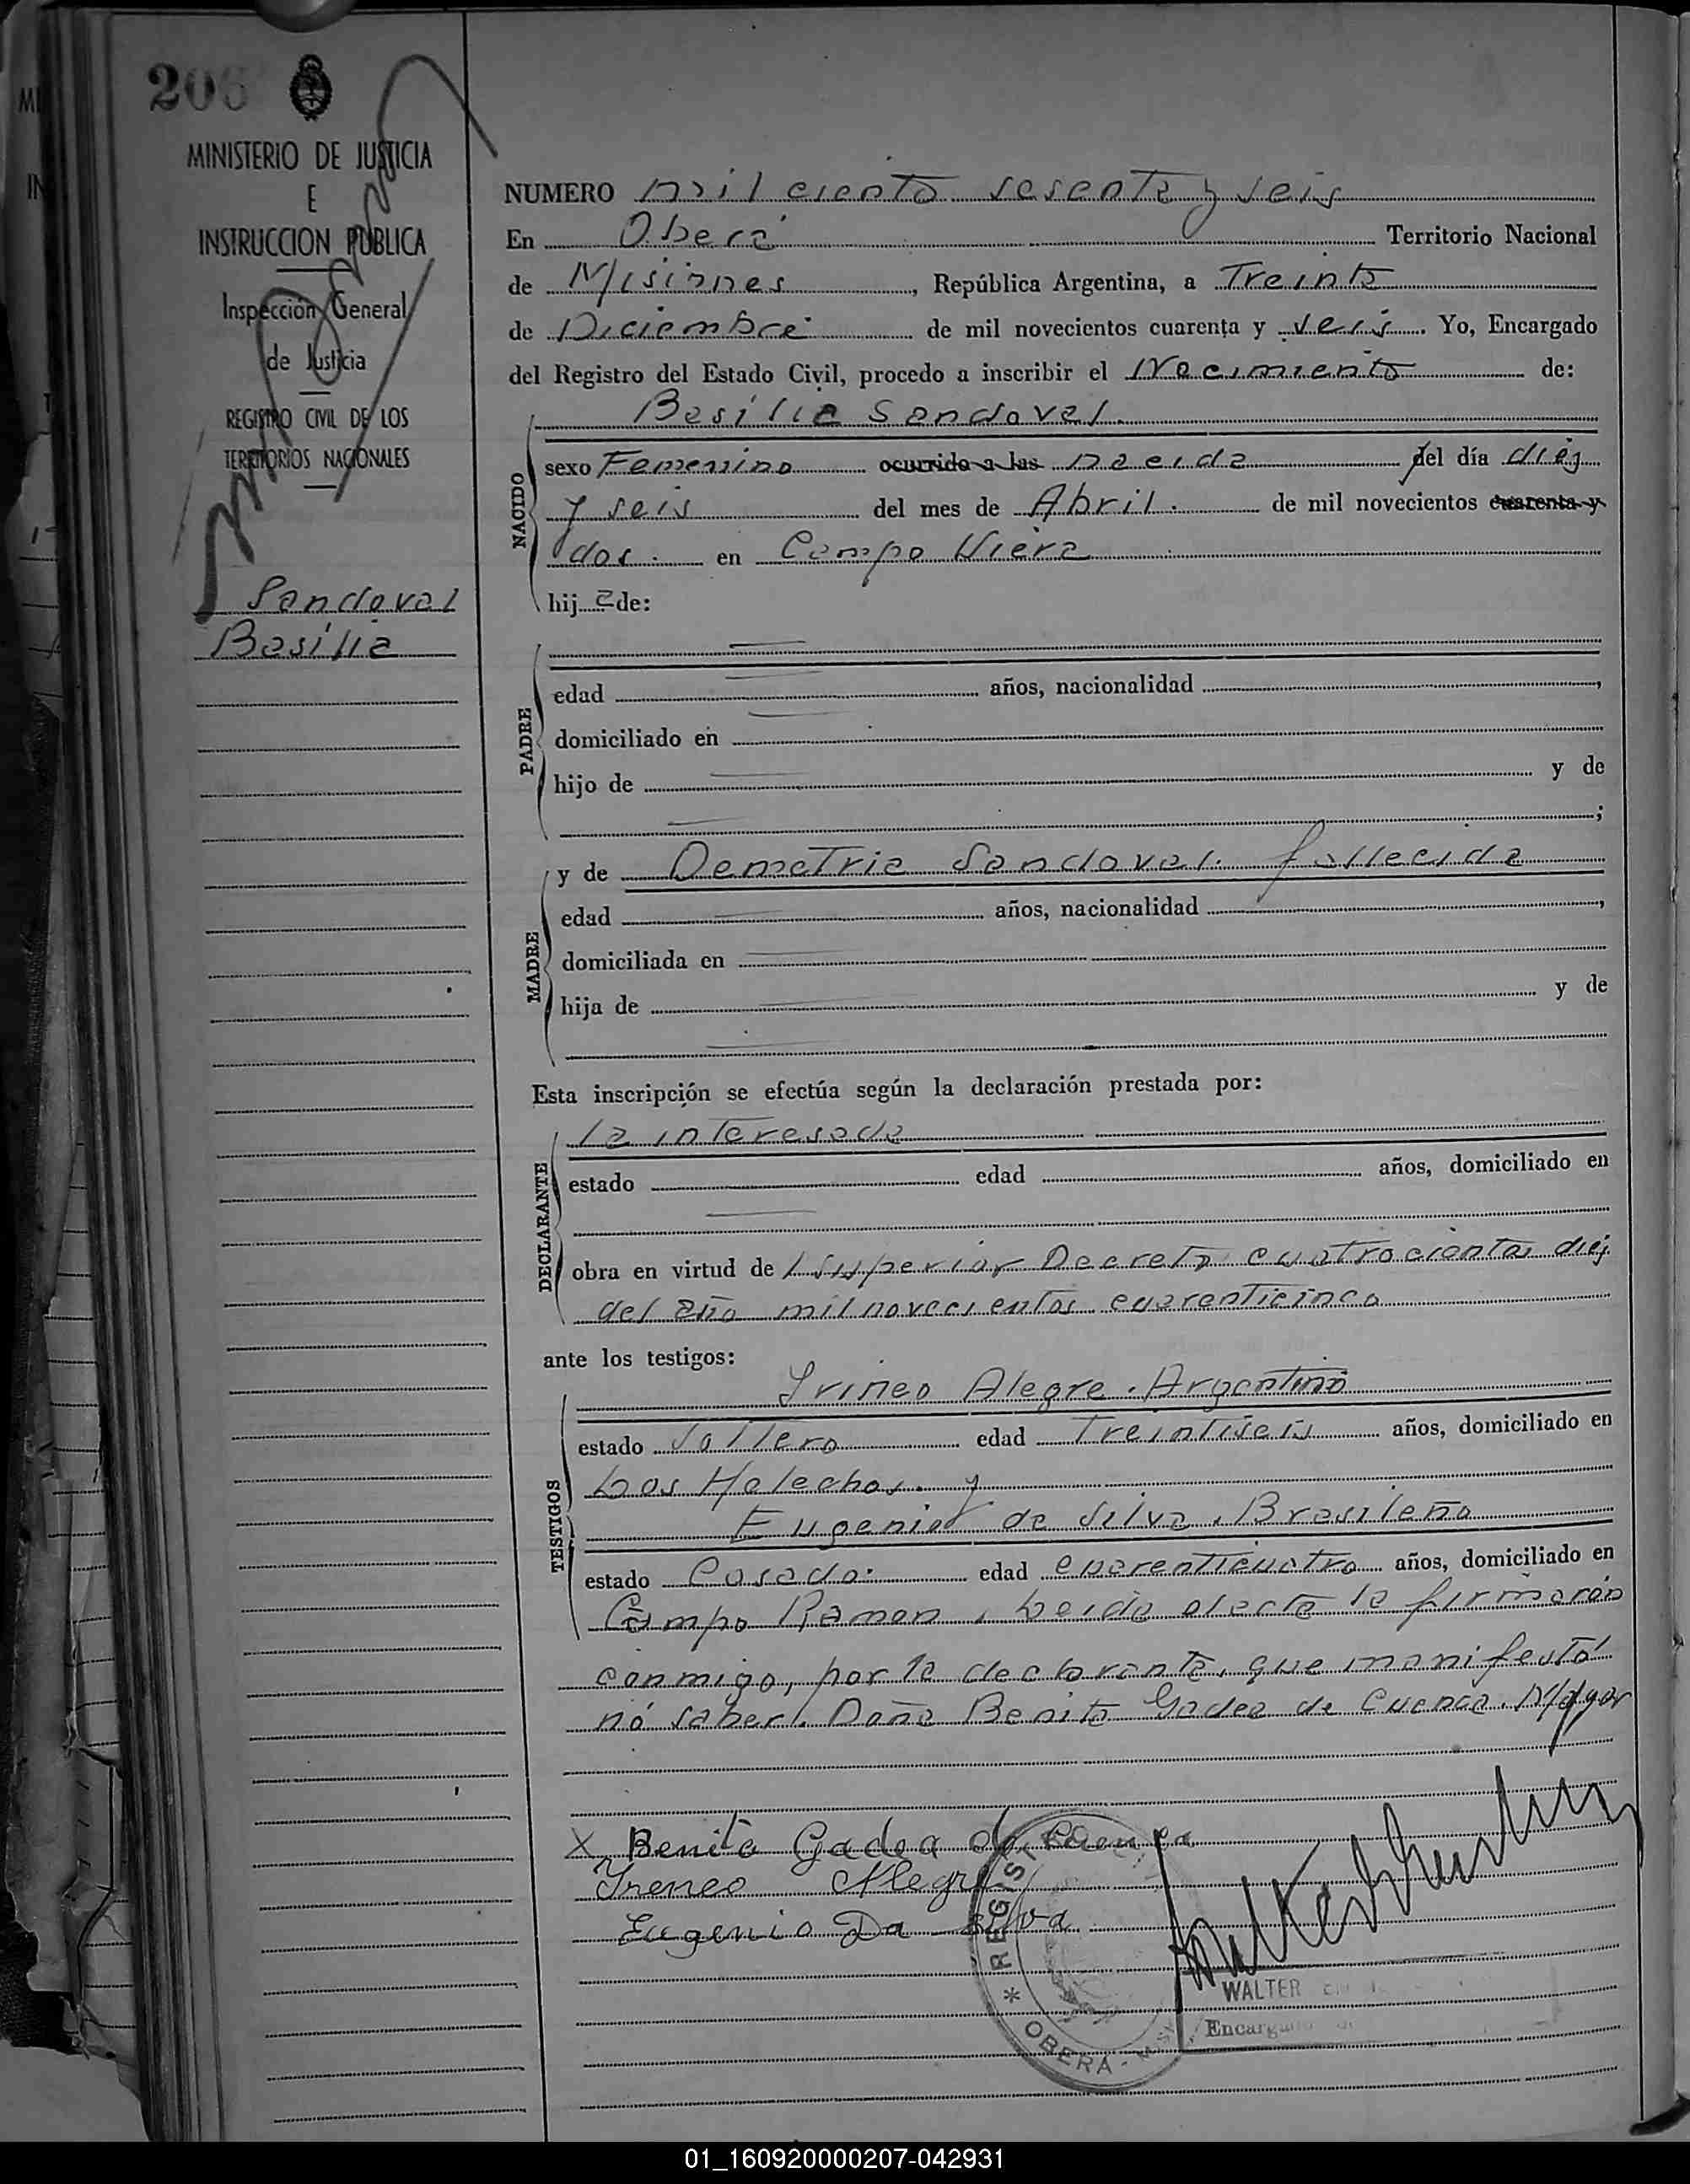 206
MINISTERIO DE JUSTICIA
E
INSTRUCCION PUBLICA
Inspección General
de Justicia
REGISTRO CIVIL DE LOS
TERRITORIOS NACIONALES
Sandoval
Basilia
NUMERO mil ciento sesenta y seis
En Oberá Territorio Nacional
de Misiones, República Argentina, a Treinta
de Diciembre de mil novecientos cuarenta y seis. Yo, Encargado
del Registro del Estado Civil, procedo a inscribir el Nacimiento de:
Basilia Sandoval.
NACIDO
sexo Femenino ocurrido a las nacida del día diez
y seis del mes de Abril. de mil novecientos cuarenta y
dos. en Campo Viera
hij a de:
PADRE
edad años, nacionalidad ,
domiciliado en
hijo de y de
;
MADRE
y de Demetria Sandoval. fallecida
edad años, nacionalidad ,
domiciliada en
hija de y de
Esta inscripción se efectúa según la declaración prestada por:
DECLARANTE
la interesada
estado edad años, domiciliado en
obra en virtud de l Superior Decreto cuatrocientos diez
del año mil novecientos cuarenticinco
ante los testigos:
TESTIGOS
Irineo Alegre. Argentino
estado Soltero edad Treintiseis años, domiciliado en
Los Helechos. y
Eugenio de Silva. Brasileño
estado Casado. edad cuarenticuatro años, domiciliado en
Campo Ramon. Leida el acta la firmarón
conmigo, por la declarante, que manifestó
nó saber. Doña Benita Gadea de Cuenca. Mayor
X Benita Gadea de Cuenca
Ireneo Alegre
Eugenio Da Silva
REGIST
* OBERA -
WALTER
Encargado
01_160920000207-042931